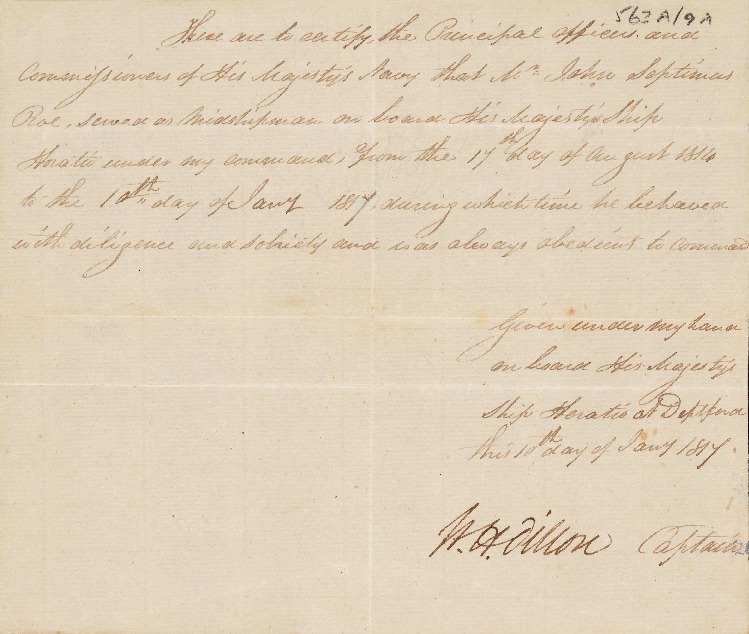 563A/9A
These are to certify, the Principal officers and
Commissioners of His Majesty's Navy that Mr. John Septimus
Roe, served as Midshipman on board His Majesty's Ship
Horatio under my command, from the 17th day of August 1816
to the 10th day of Jany 1817, during which time he behaved
with diligence and sobriety and was always obedient to command
Given under my hand
on board His Majesty's
Ship Horatio at Deptford
this 10th day of Jany 1817.
W. H. Dillon Captain